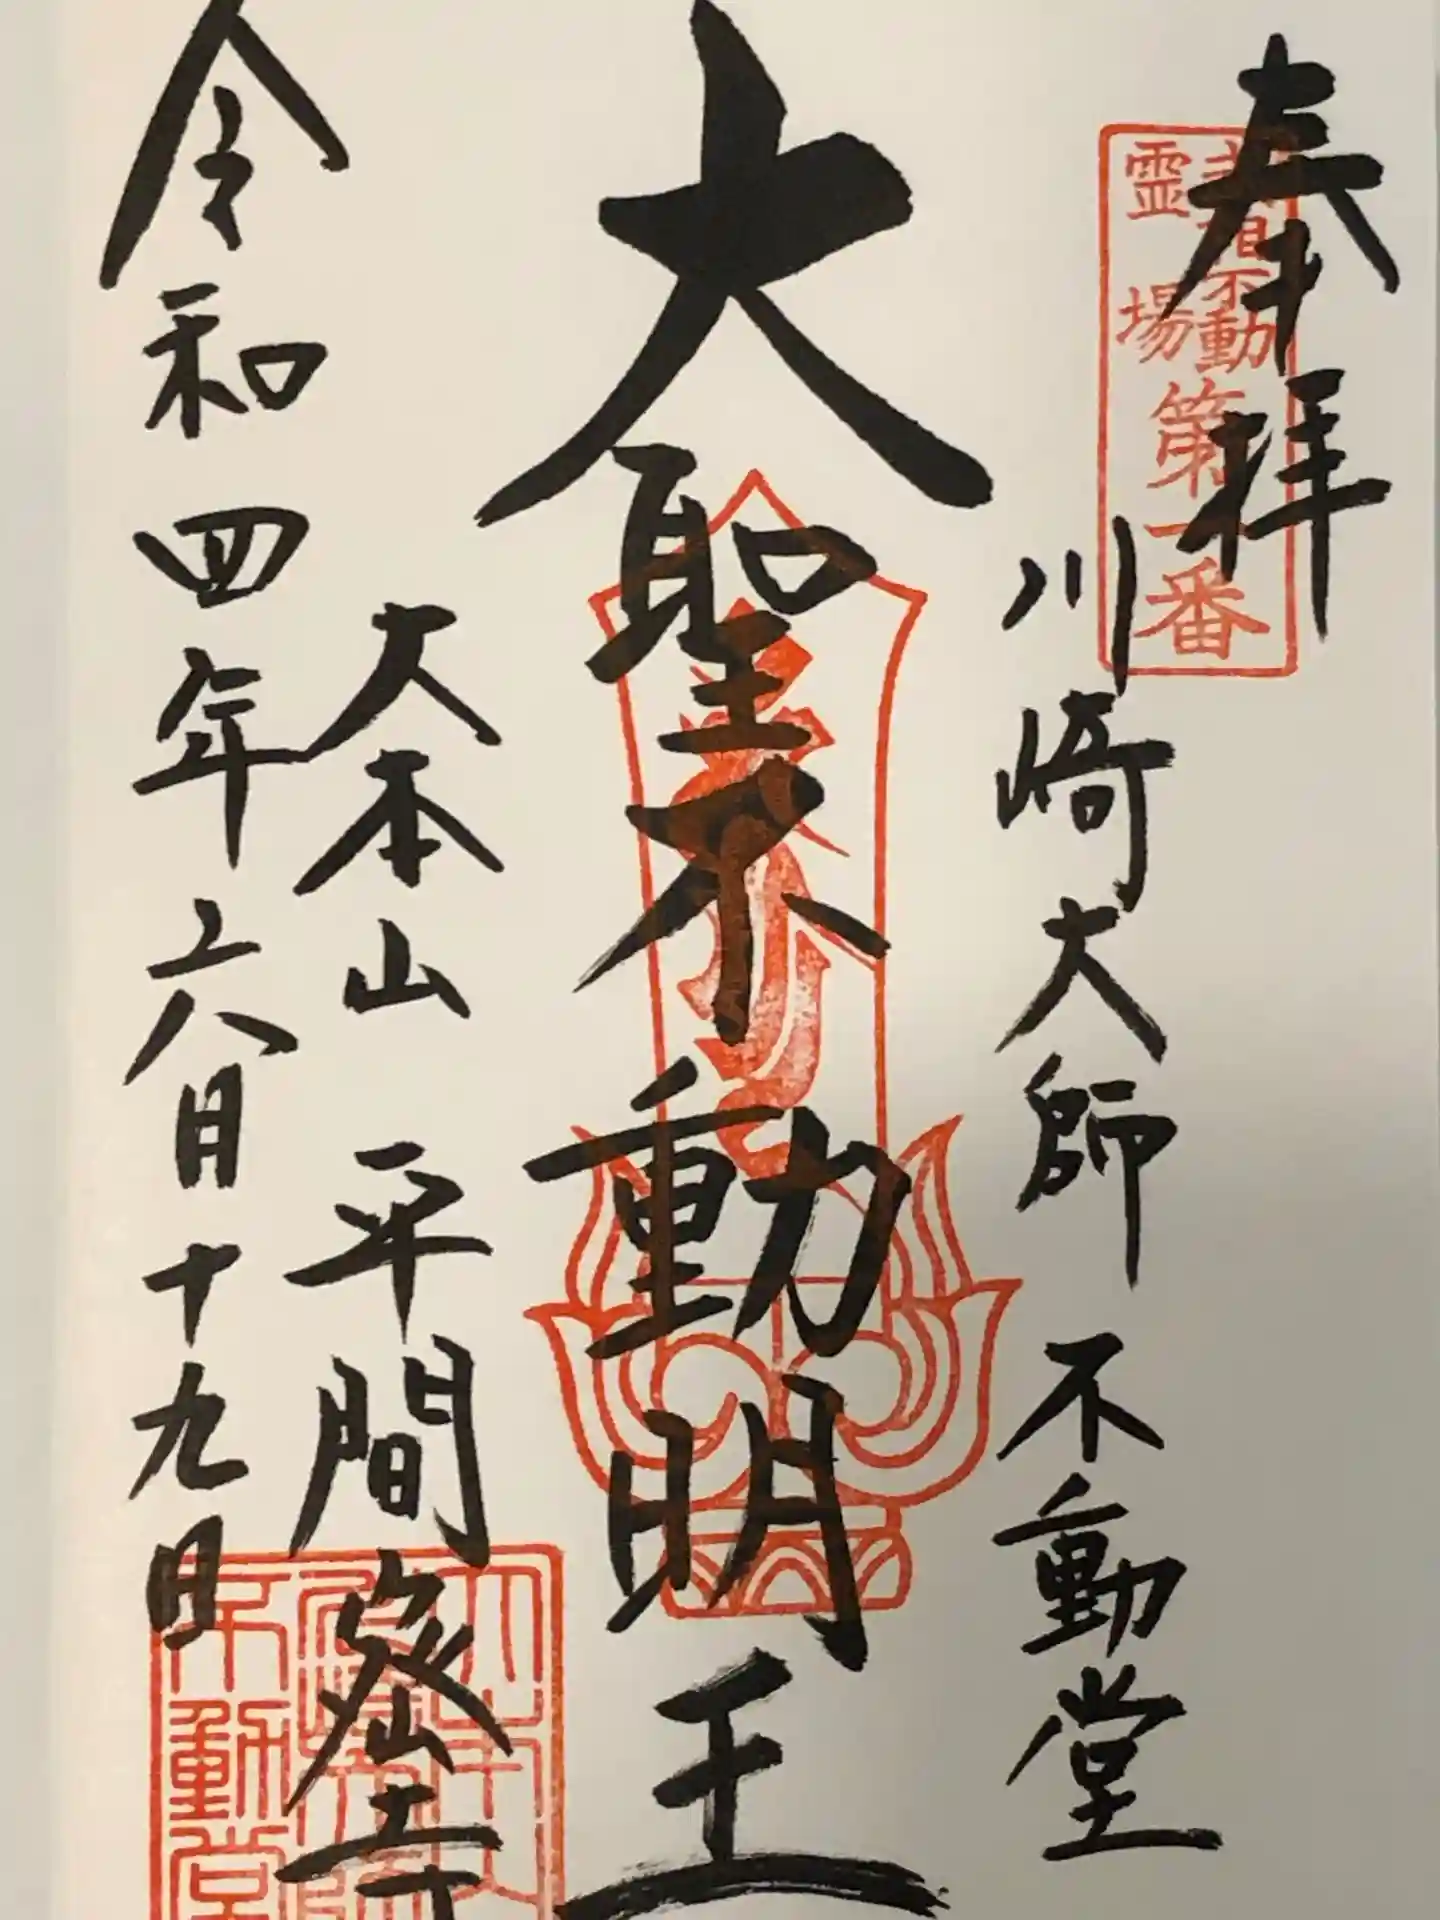 奉拝
武相不動
霊場
第一番
川崎大師 不動堂
大聖不動明王
大本山 平間寺
令和四年六月十九日
不動堂